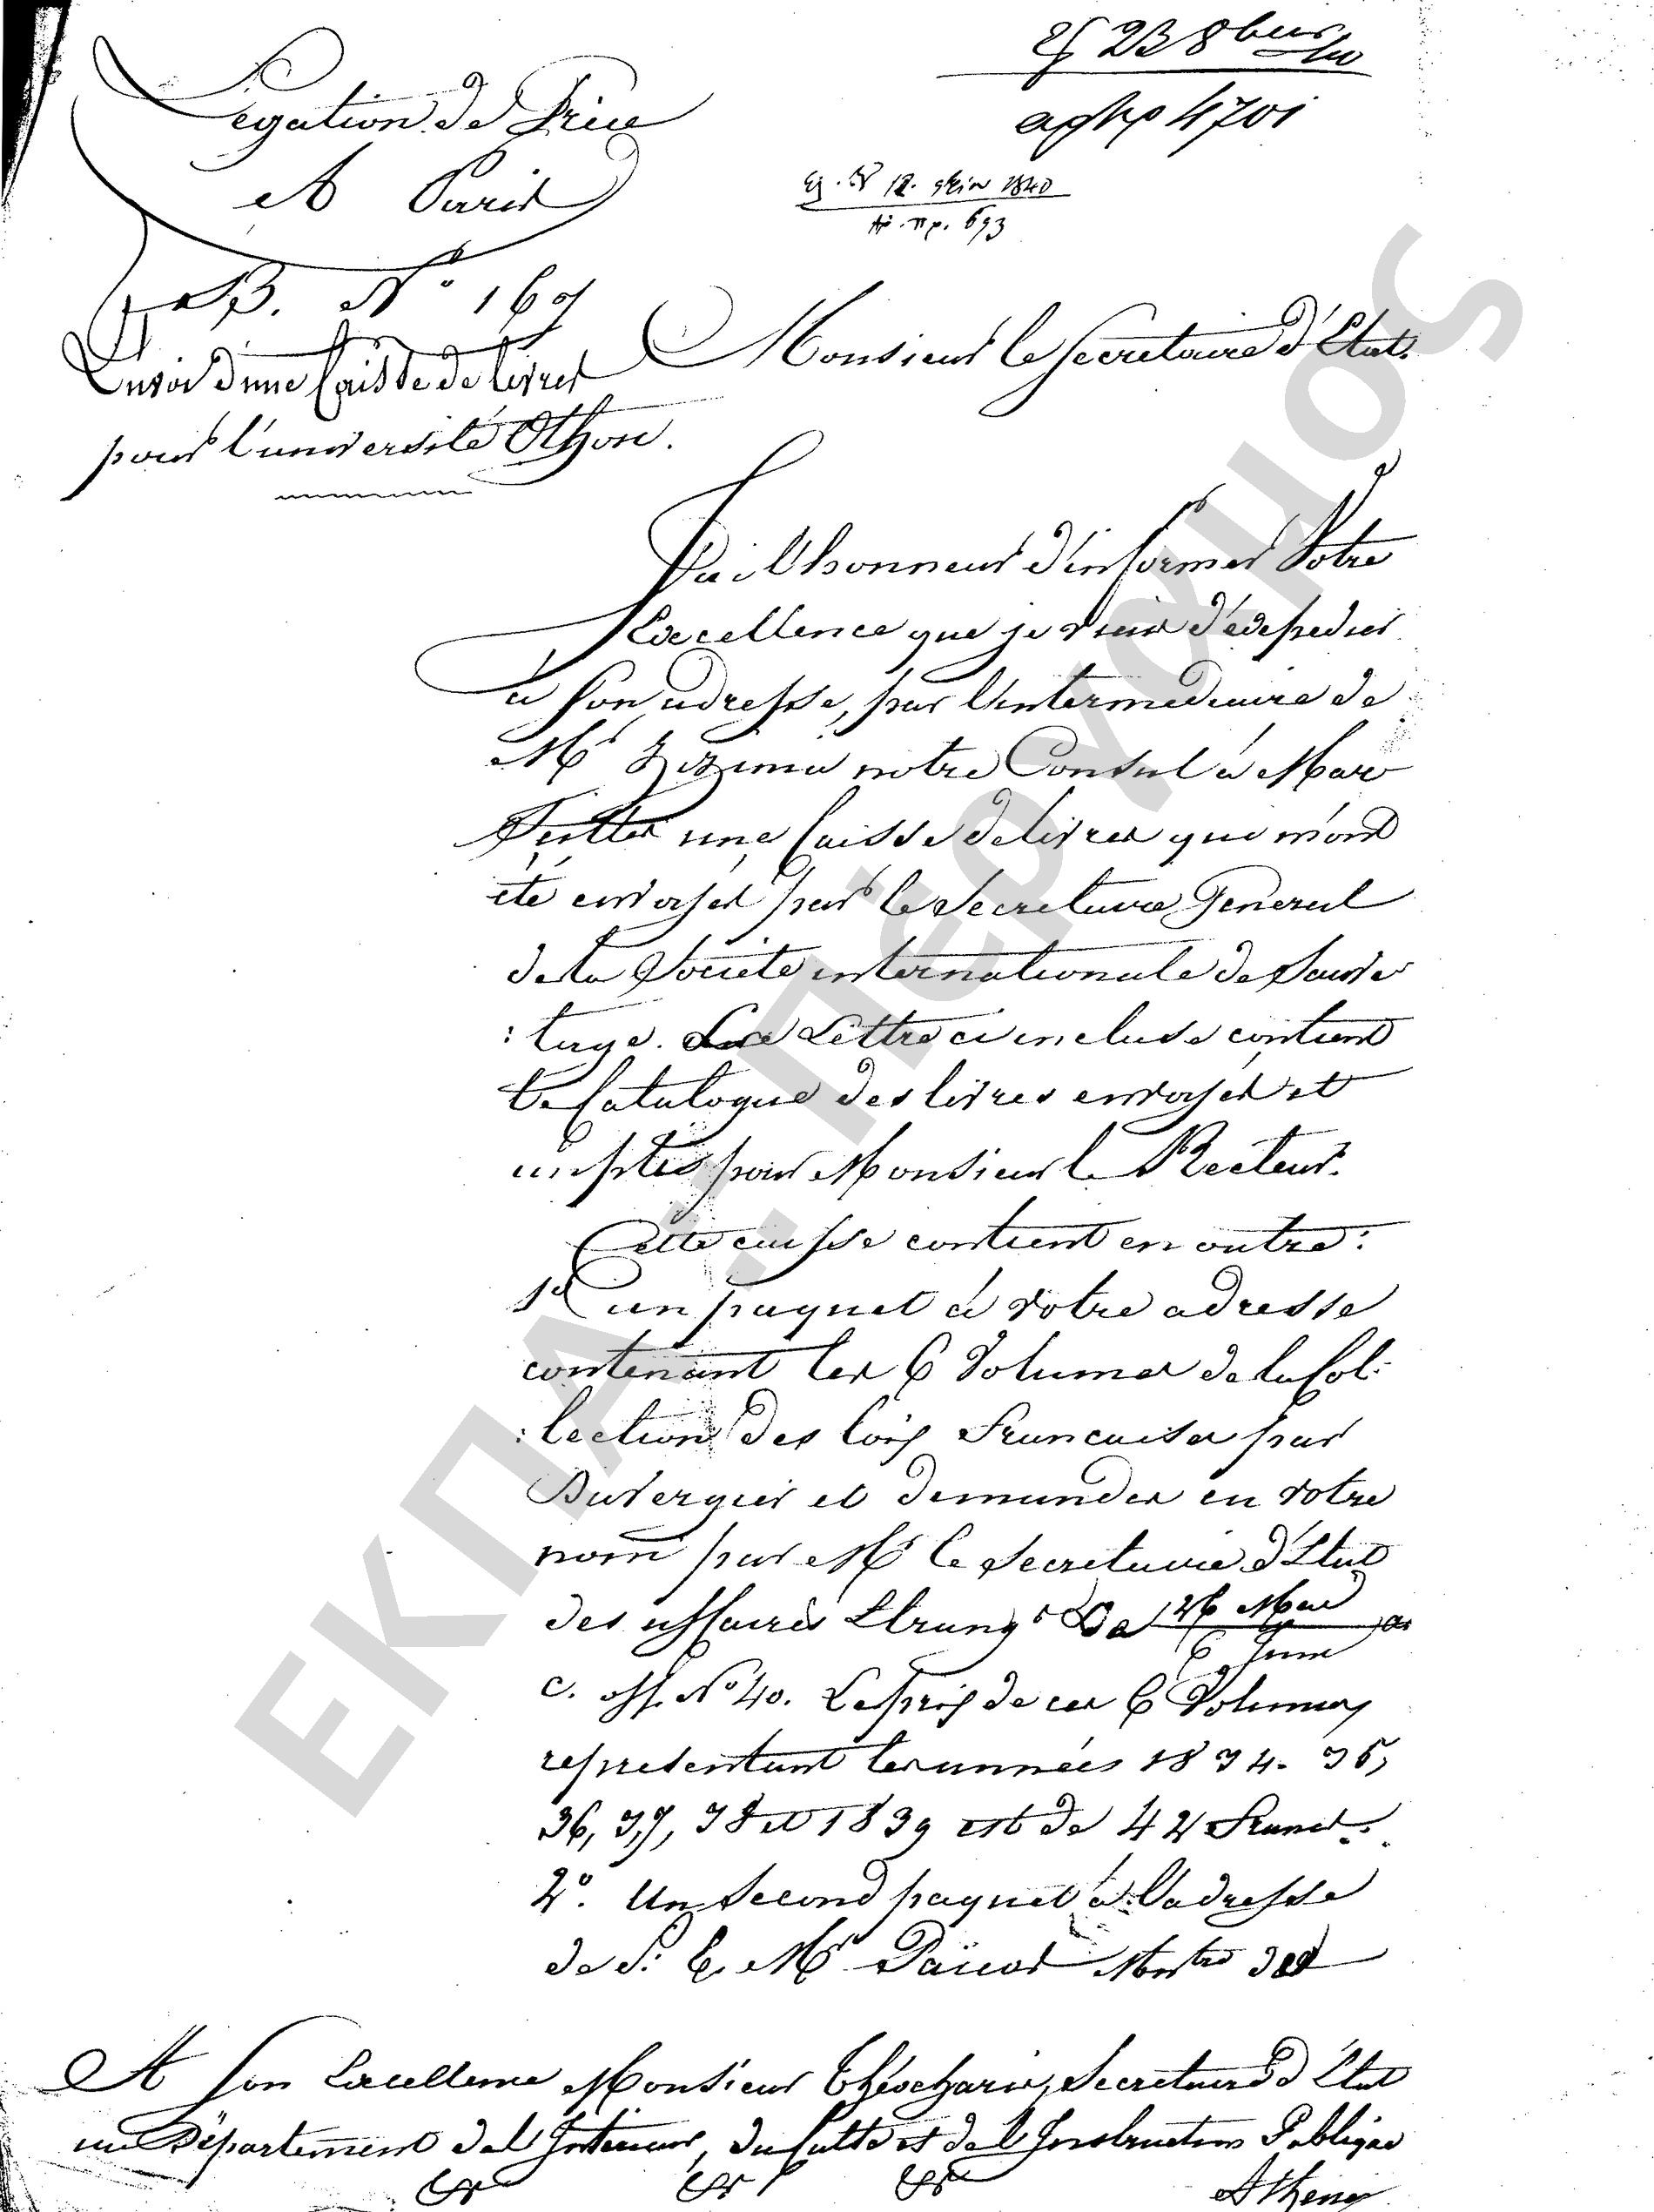 Légation de Grèce
à Paris
B. N° 167
Envoi d'une Caisse de livres
pour l'université Othon.
23 8bre
4701
12. 1840
π. πρ. 693
Monsieur le Secretaire d'Etat.
J'ai l'honneur d'informer Votre
Excellence que je viens d'expedier
à son adresse, par l'intermediaire de
Mr Zizinia notre Consul à Mar
seilles une Caisse de livres qui m'ont
été envoyés par le Secretaire General
de la Societé internationale de Sauve
: tage. La Lettre ci incluse contient
le Catalogue des livres envoyés et
pour Monsieur le Recteur.
Cette caisse contient en outre :
1° un paquet à votre adresse
contenant les 6 Volumes de la Col:
: lection des loix francaises par
Duvergier et demandés en votre
nom par Mr le Secretaire d'Etat
des affaires Etrang. 26 Mai
6 Juin
c. off. N° 40. Le prix de ces 6 Volumes
representant les années 1834. 35,
36, 37, 38 et 1839 est de 42 francs.
2°. Un second paquet à l'adresse
de S. E. Mr Païcos Mtre des
A Son Excellence Monsieur Théocharis, Secretaire d'Etat
au Département de l'Intérieur, du Culte et de l'Instruction Publique
Athenes
ΕΚΠΑ